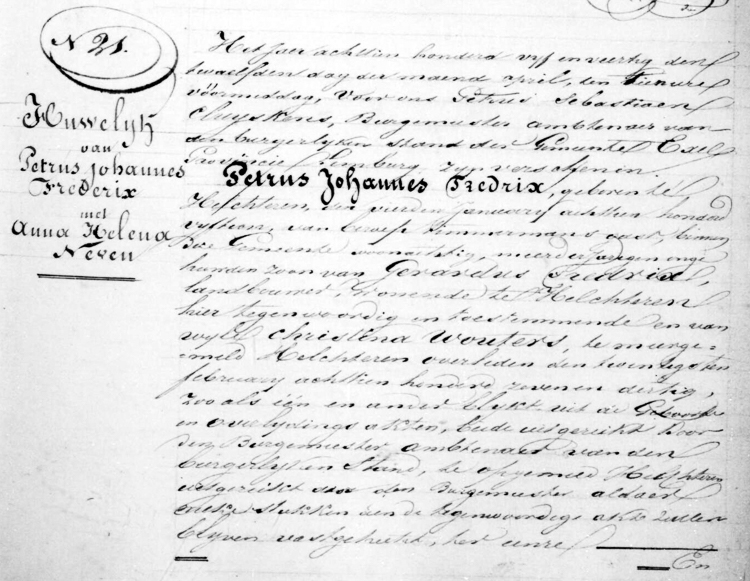 N 21.
Huwelyk
van
Petrus Johannes
Frederix
met
Anna Helena
Neven
Het jaer achttien honderd vyf en veertig den
twaelfden dag der maend April, ten tien ure
voormiddag, voor ons Petrus Sebastiaen
Cluyskens, Burgemeester ambtenaer van
den burgerlyken stand der Gemeente
Provincie Limburg, zyn verschenen.
Petrus Johannes Fredrix, geboren te
Helchteren, den vierden January achttien honderd
vyftien, van beroep Timmermans gast, binnen
Gemeente woonachtig, meerderjarigen onge
huwden zoon van Gerardus Fredrix,
landbouwer, wonende te Helchteren
hier tegenwoordig en toestemmende en van
wyle Christina Wouters, te meerge=
meld Helchteren overleden den twentigsten
february achttien honderd zeven en dertig,
zoo als één en ander blykt uit de Geboorte
en overlydings akten, beide uitgereikt door
den Burgemeester ambtenaer van den
burgerlyken Stand, te opgemeld Helchteren
uitgereikt door den Burgemeester aldaer
welke stukken aen de tegenwoordige akte zullen
blyven vastgehecht, ter eenre
En